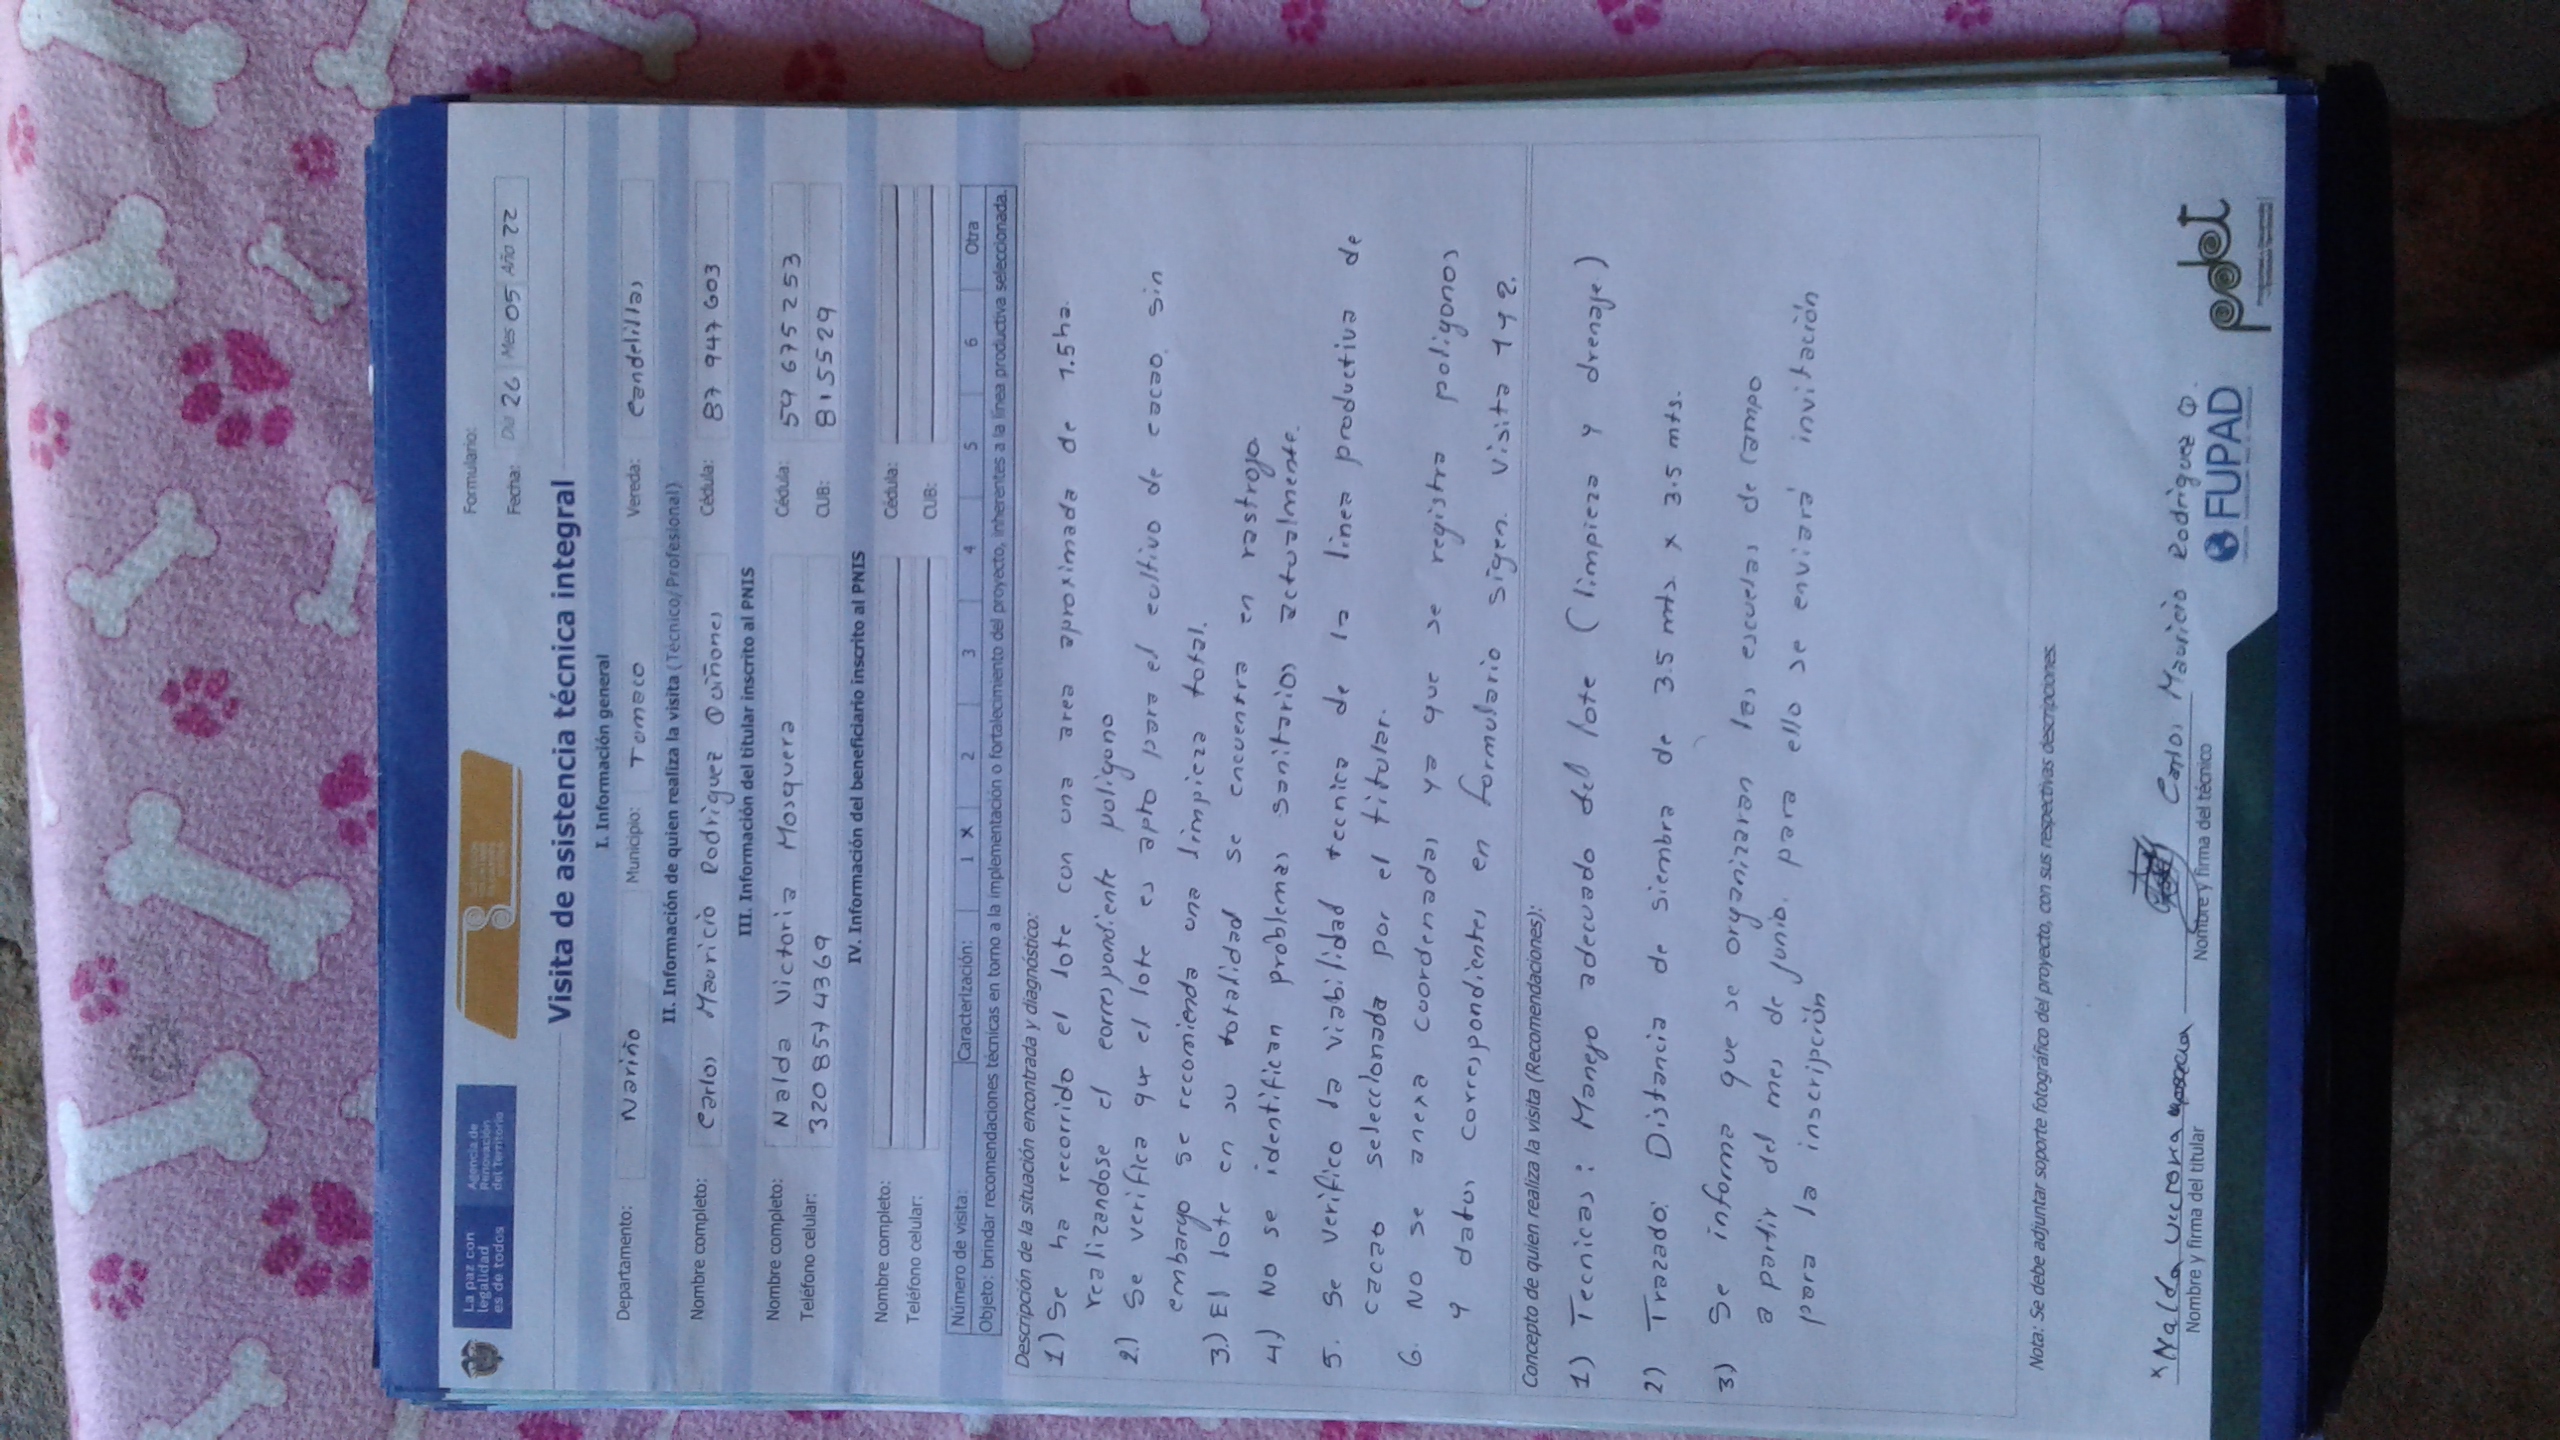 La paz con
legalidad
es de todos
Agencia de
Renovación
del territorio
Formulario:
Fecha: Día 26 Mes 05 Año 22
Visita de asistencia técnica integral
I. Información general
Departamento: Nariño Municipio: Tumaco Vereda: Candelillas
II. Información de quien realiza la visita (Técnico/Profesional)
Nombre completo: Carlos Mauricio Rodriguez Quiñones Cédula: 87 947 603
III. Información del titular inscrito al PNIS
Nombre completo: Nalda Victoria Mosquera Cédula: 59 675 253
Teléfono celular: 3208574369 CUB: 815529
IV. Información del beneficiario inscrito al PNIS
Nombre completo: Cédula:
Teléfono celular: CUB:
Número de visita: Caracterización: 1 X 2 3 4 5 6 Otra
Objeto: brindar recomendaciones técnicas en torno a la implementación o fortalecimiento del proyecto, inherentes a la línea productiva seleccionada.
Descripción de la situación encontrada y diagnóstico:
1) Se ha recorrido el lote con una area aproximada de 1.5ha.
realizandose el correspondiente poligono
2.) Se verifica que el lote es apto para el cultivo de cacao. sin
embargo se recomienda una limpieza total.
3.) El lote en su totalidad se encuentra en rastrojo
4.) No se identifican problemas sanitarios actualmente.
5. Se verifico la viabilidad tecnica de la linea productiva de
cacao seleccionada por el titular.
6. No se anexa coordenadas ya que se registra poligonos
y datos correspondientes en formulario sigen. visita 1 y 2.
Concepto de quien realiza la visita (Recomendaciones):
1) Tecnicas: Manejo adecuado del lote (limpieza y drenaje)
2) Trazado: Distancia de siembra de 3.5 mts. x 3.5 mts.
3) Se informa que se organizaran las escuelas de campo
a partir del mes de junio. para ello se enviará invitación
para la inscripción
Nota: Se debe adjuntar soporte fotográfico del proyecto, con sus respectivas descripciones.
x Nalda Victoria Mosquera Carlos Mauricio Rodriguez Q.
Nombre y firma del titular Nombre y firma del técnico
FUPAD
pdet